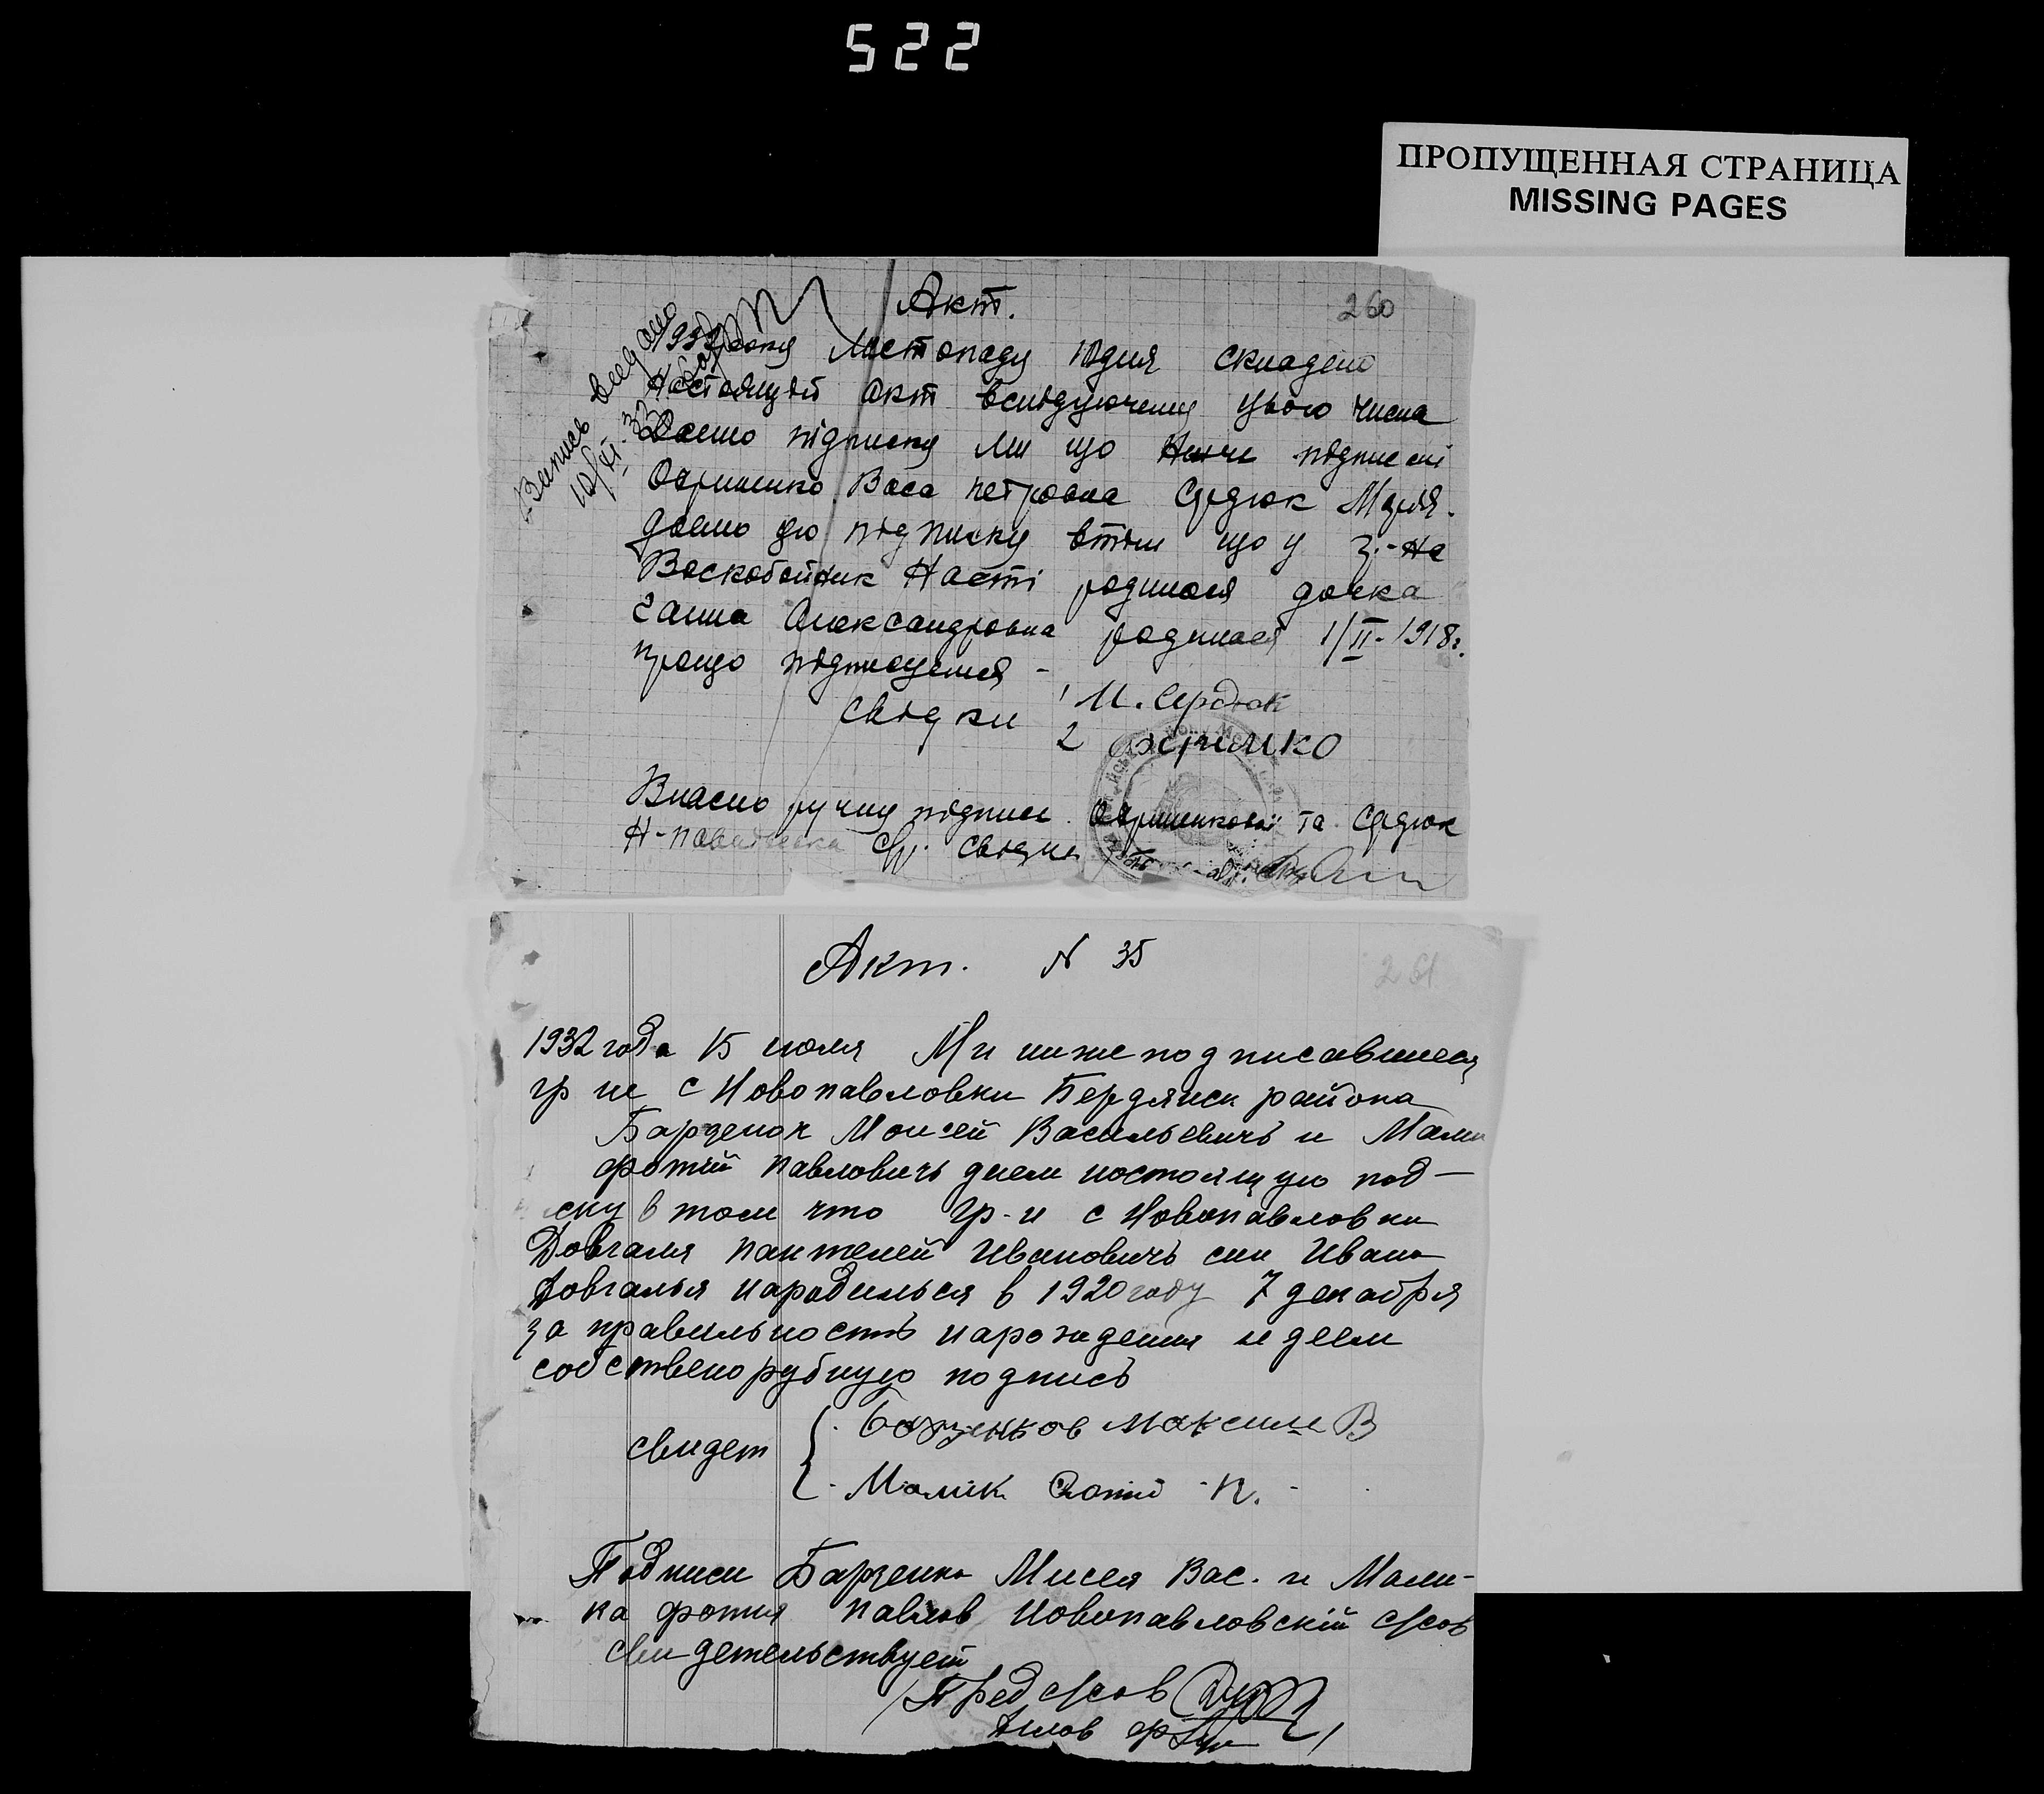 522
ПРОПУЩЕННАЯ СТРАНИЦА
MISSING PAGES
Акт.
260
Випись видано
10/XI.32
1932 року Листопаду 10 дня складено
Настоящий акт вслідуючему цього числа
Даемо підписку ми що Ниче підписані
Охрименко Васа петровна Середюк Марія.
даемо цю підписку втом що у г.-На
Воскобойник Насті родилася дочка
Ганна Олександровна родилася 1/II-1918г.
прощо підписуемся -
Свідки 1 М. Сердюк
2 Охримко
Власно ручну підписе. Охрименковой та Середюк
Н-Павлівска С/р. свідче
Акт. N 35
261
1932 года 15 июля Ми нижеподписавшиеся
гр не с Новопавловки Бердянск района
Барзенок Моисей Васильевичъ и Мали
фотий павловичь днем ностоящую под-
ску в том что гр-н с Новопавловки
Довгаля пантелей Ивановичъ син Ивана
Довгалья народилься в 1920 году 7 декабря
за правильность нарождения и деем
собственорубную подпись
свидет { Борзенков Максим В
Малик Фотий П.
Подписи Барзенка Мисея Вас. и Мали-
ка фотия павлов Новопавловскій с/сов
свидетельствует
Пред с/сов